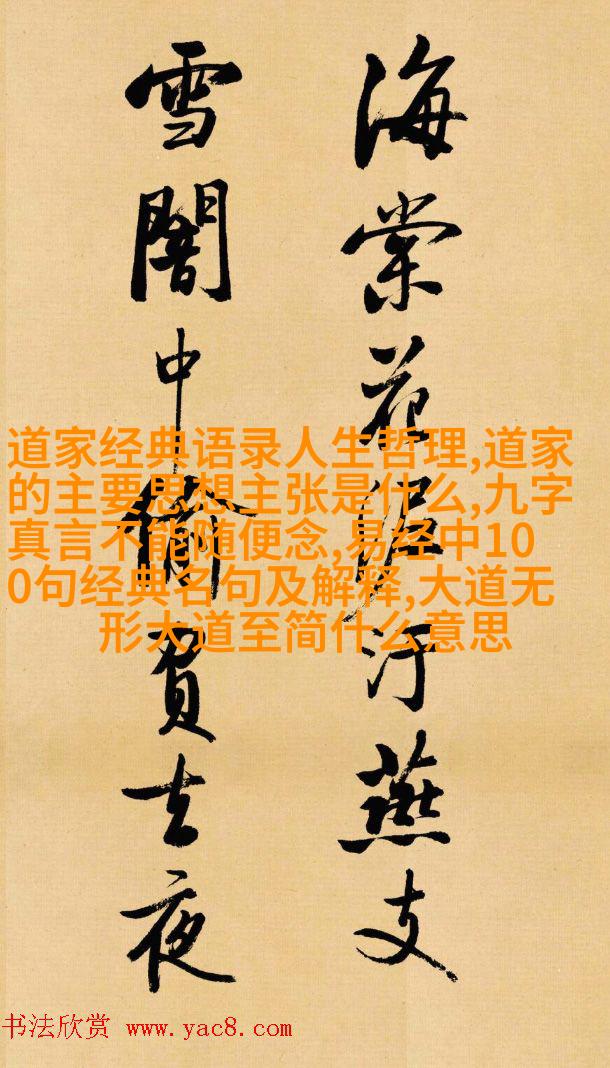 海棠花泥汙燕支
雪闇中偷負去夜
道家经典语录人生哲理,道家
的主要思想主张是什么,九字
真言不能随便念,易经中10
0句经典名句及解释,大道无
形大道至简什么意思
书法欣赏 www.yac8.com